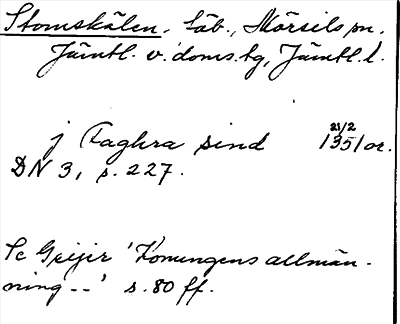 Stomskälen. Säb., Mörsils sn.
Jämtl. v. doms.bg, Jämtl. l.
j Faghra sind 21/2 1351 or.
DN 3, s. 227.
Se Geijer 'Konungens allmän-
ning--' s. 80 ff.